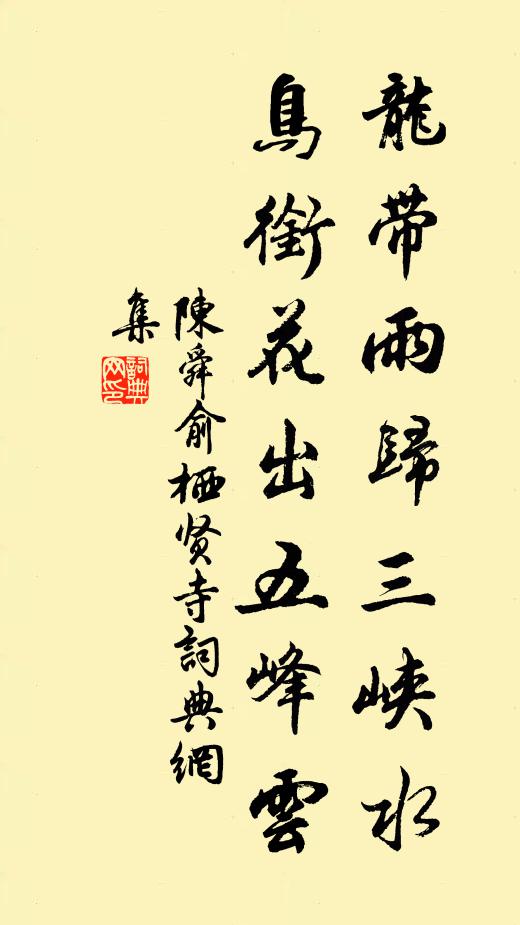 龍带雨歸三峡水
鳥銜花出五峰雲
陳舜俞栖贤寺詞典網
集
詞典
网印